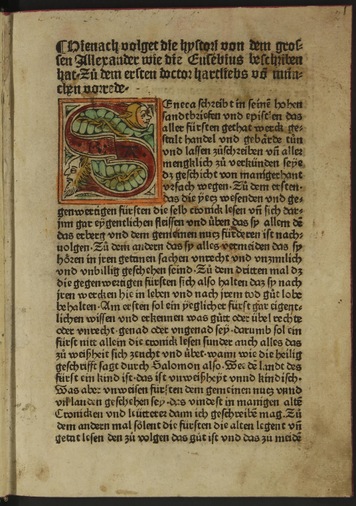 Hienach volget die hystori von dem gros-
sen Allexander wie die Eusebius beschriben
hat. Zů dem ersten doctor hartliebs vō mün-
chen vorrede.
Seneca schreibt in seinē hohen
sandtbriefen vnd epistlen das
aller fürsten gethat werck ge-
stalt handel vnd gebärde tůn
vnd lassen zůschreiben vñ vor
mengklich zů verkünden seye
dz geschicht von manigerhant
vrsach wegen. Zů dem ersten.
das die yecz wesenden vnd ge-
genwertigen fürsten die selb cronick lesen vñ sich dar-
inn gar eygentlichen fleissen vnd üben das sy allem dē
das erberg vnd dem gemeinen nucz fürderen ist nach-
uolgen. Zů dem andern das sy alles vermeiden das sy
hören in iren getanen sachen vnrecht vnd vnzimlich
vnd vnbillig geschehen seind. Zů dem dritten mal dz
die gegenwertigen fürsten sich also halten daz sy nach
iren wercken hie in leben vnd nach irem tod gůt lobe
behalten. Am ersten sol ein yeglicher fürst gar eigent-
lichen wissen vnd erkennen was gůt oder übel rechte
oder vnrecht. genad oder vngenad sey. darumb sol ein
fürst nitt allein die cronick lesen sunder auch alles das
zů weißheit sich zeucht vnd übet. wann wie die heilig
geschrifft sagt durch Salomon also. Wee dē lande des
fürst ein kind ist. das ist vnweißheyt vnnd kindisch.
Was aber vnweisen fürsten dem gemeinen nucz vnnd
vil landen geschehen sey. das vindest in manigen altē
Cronicken vnd leütterer dann ich geschreibē mag. Zů
dem andern mal sölent die fürsten die alten legent vñ
getat lesen den zů volgen das gůt ist vnd das zů meidē